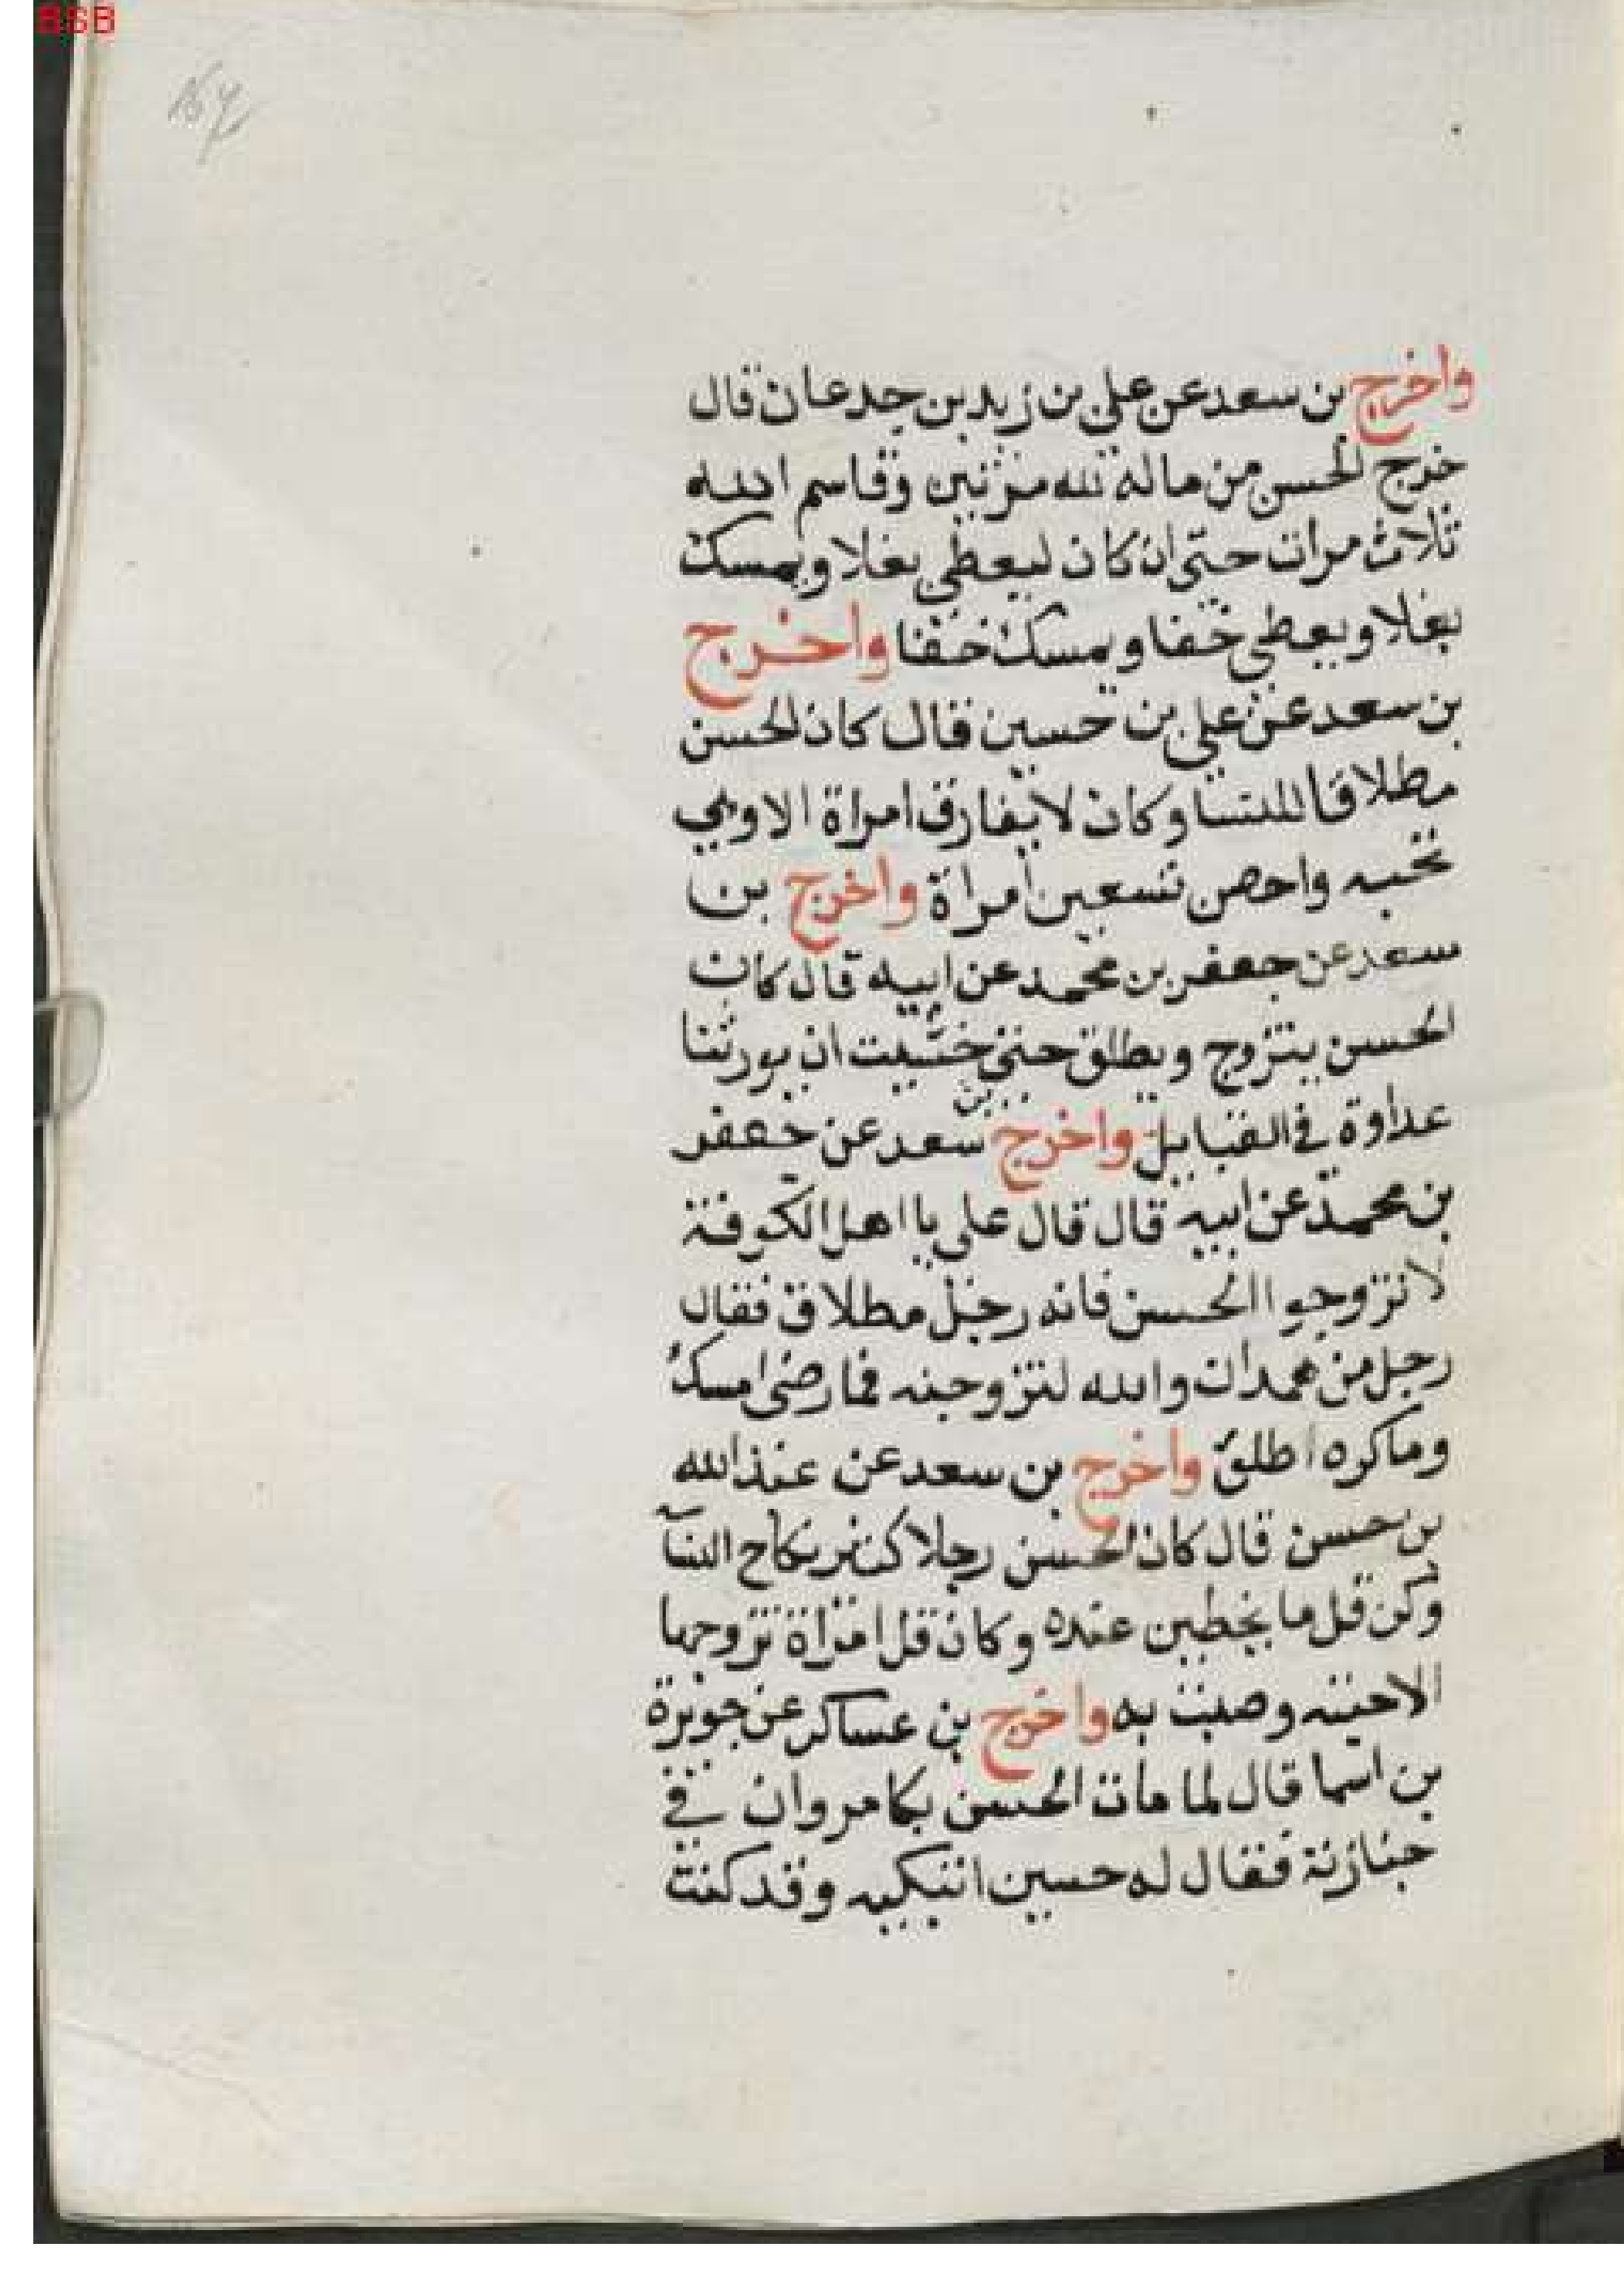 BSB
واخرج بن سعد عن علي بن زيد بن جدعان قال
خرج الحسن من ماله لله مرتين وقاسم الله
ثلاث مرات حتى ان كان ليعطي نعلا ويمسك
نعلا ويعطي خفا ويمسك خفا واخرج
بن سعد عن علي بن حسين قال كان الحسن
مطلاقا للنسا وكان لا يفارق امراة الا وهي
تحبه واحصن تسعين امراة واخرج بن
سعد عن جعفر بن محمد عن ابيه قال كان
الحسن يتزوج ويطلق حتى خشيت ان يورثنا
عداوة في القبايل واخرج بن سعد عن جعفر
بن محمد عن ابيه قال قال علي يا اهل الكوفة
لا تزوجوا الحسن فانه رجل مطلاق فقال
رجل من همدان والله لنزوجنه فما رضى امسك
وما كره اطلق واخرج بن سعد عن عبد الله
بن حسن قال كان الحسن رجلا كثير نكاح النسا
وكن قل ما يحظين عنده وكان قل امراة تزوجها
الا احبته وصبت به واخرج بن عساكر عن جويرة
بن اسما قال لما مات الحسن بكا مروان في
جنازته فقال له حسين اتبكيه وقد كنت